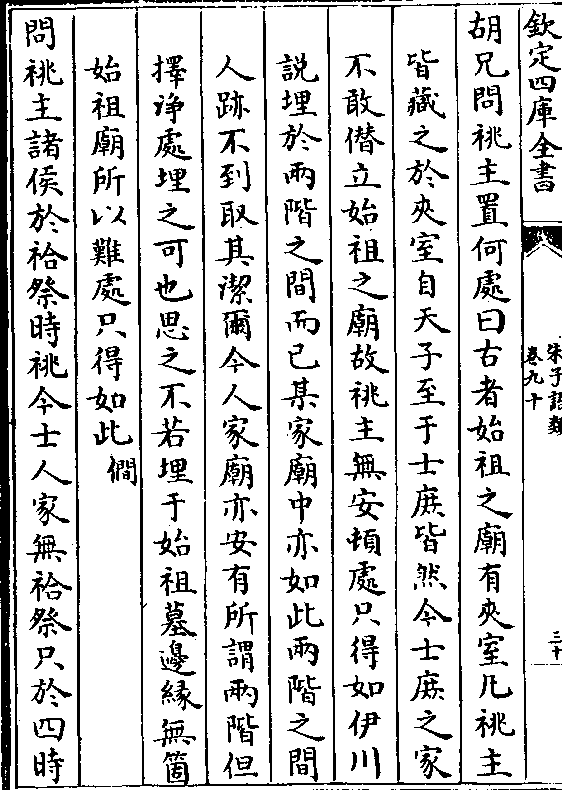 欽定四庫全書
朱子語類
卷九十
三十
胡兄問祧主置何處曰古者始祖之廟有夾室凡祧主
皆藏之於夾室自天子至于士庶皆然今士庶之家
不敢僭立始祖之廟故祧主無安頓處只得如伊川
說埋於兩階之間而已某家廟中亦如此兩階之間
人跡不到取其潔爾今人家廟亦安有所謂兩階但
擇淨處埋之可也思之不若埋于始祖墓邊緣無箇
始祖廟所以難處只得如此 僩
問祧主諸侯於祫祭時祧今士人家無祫祭只於四時